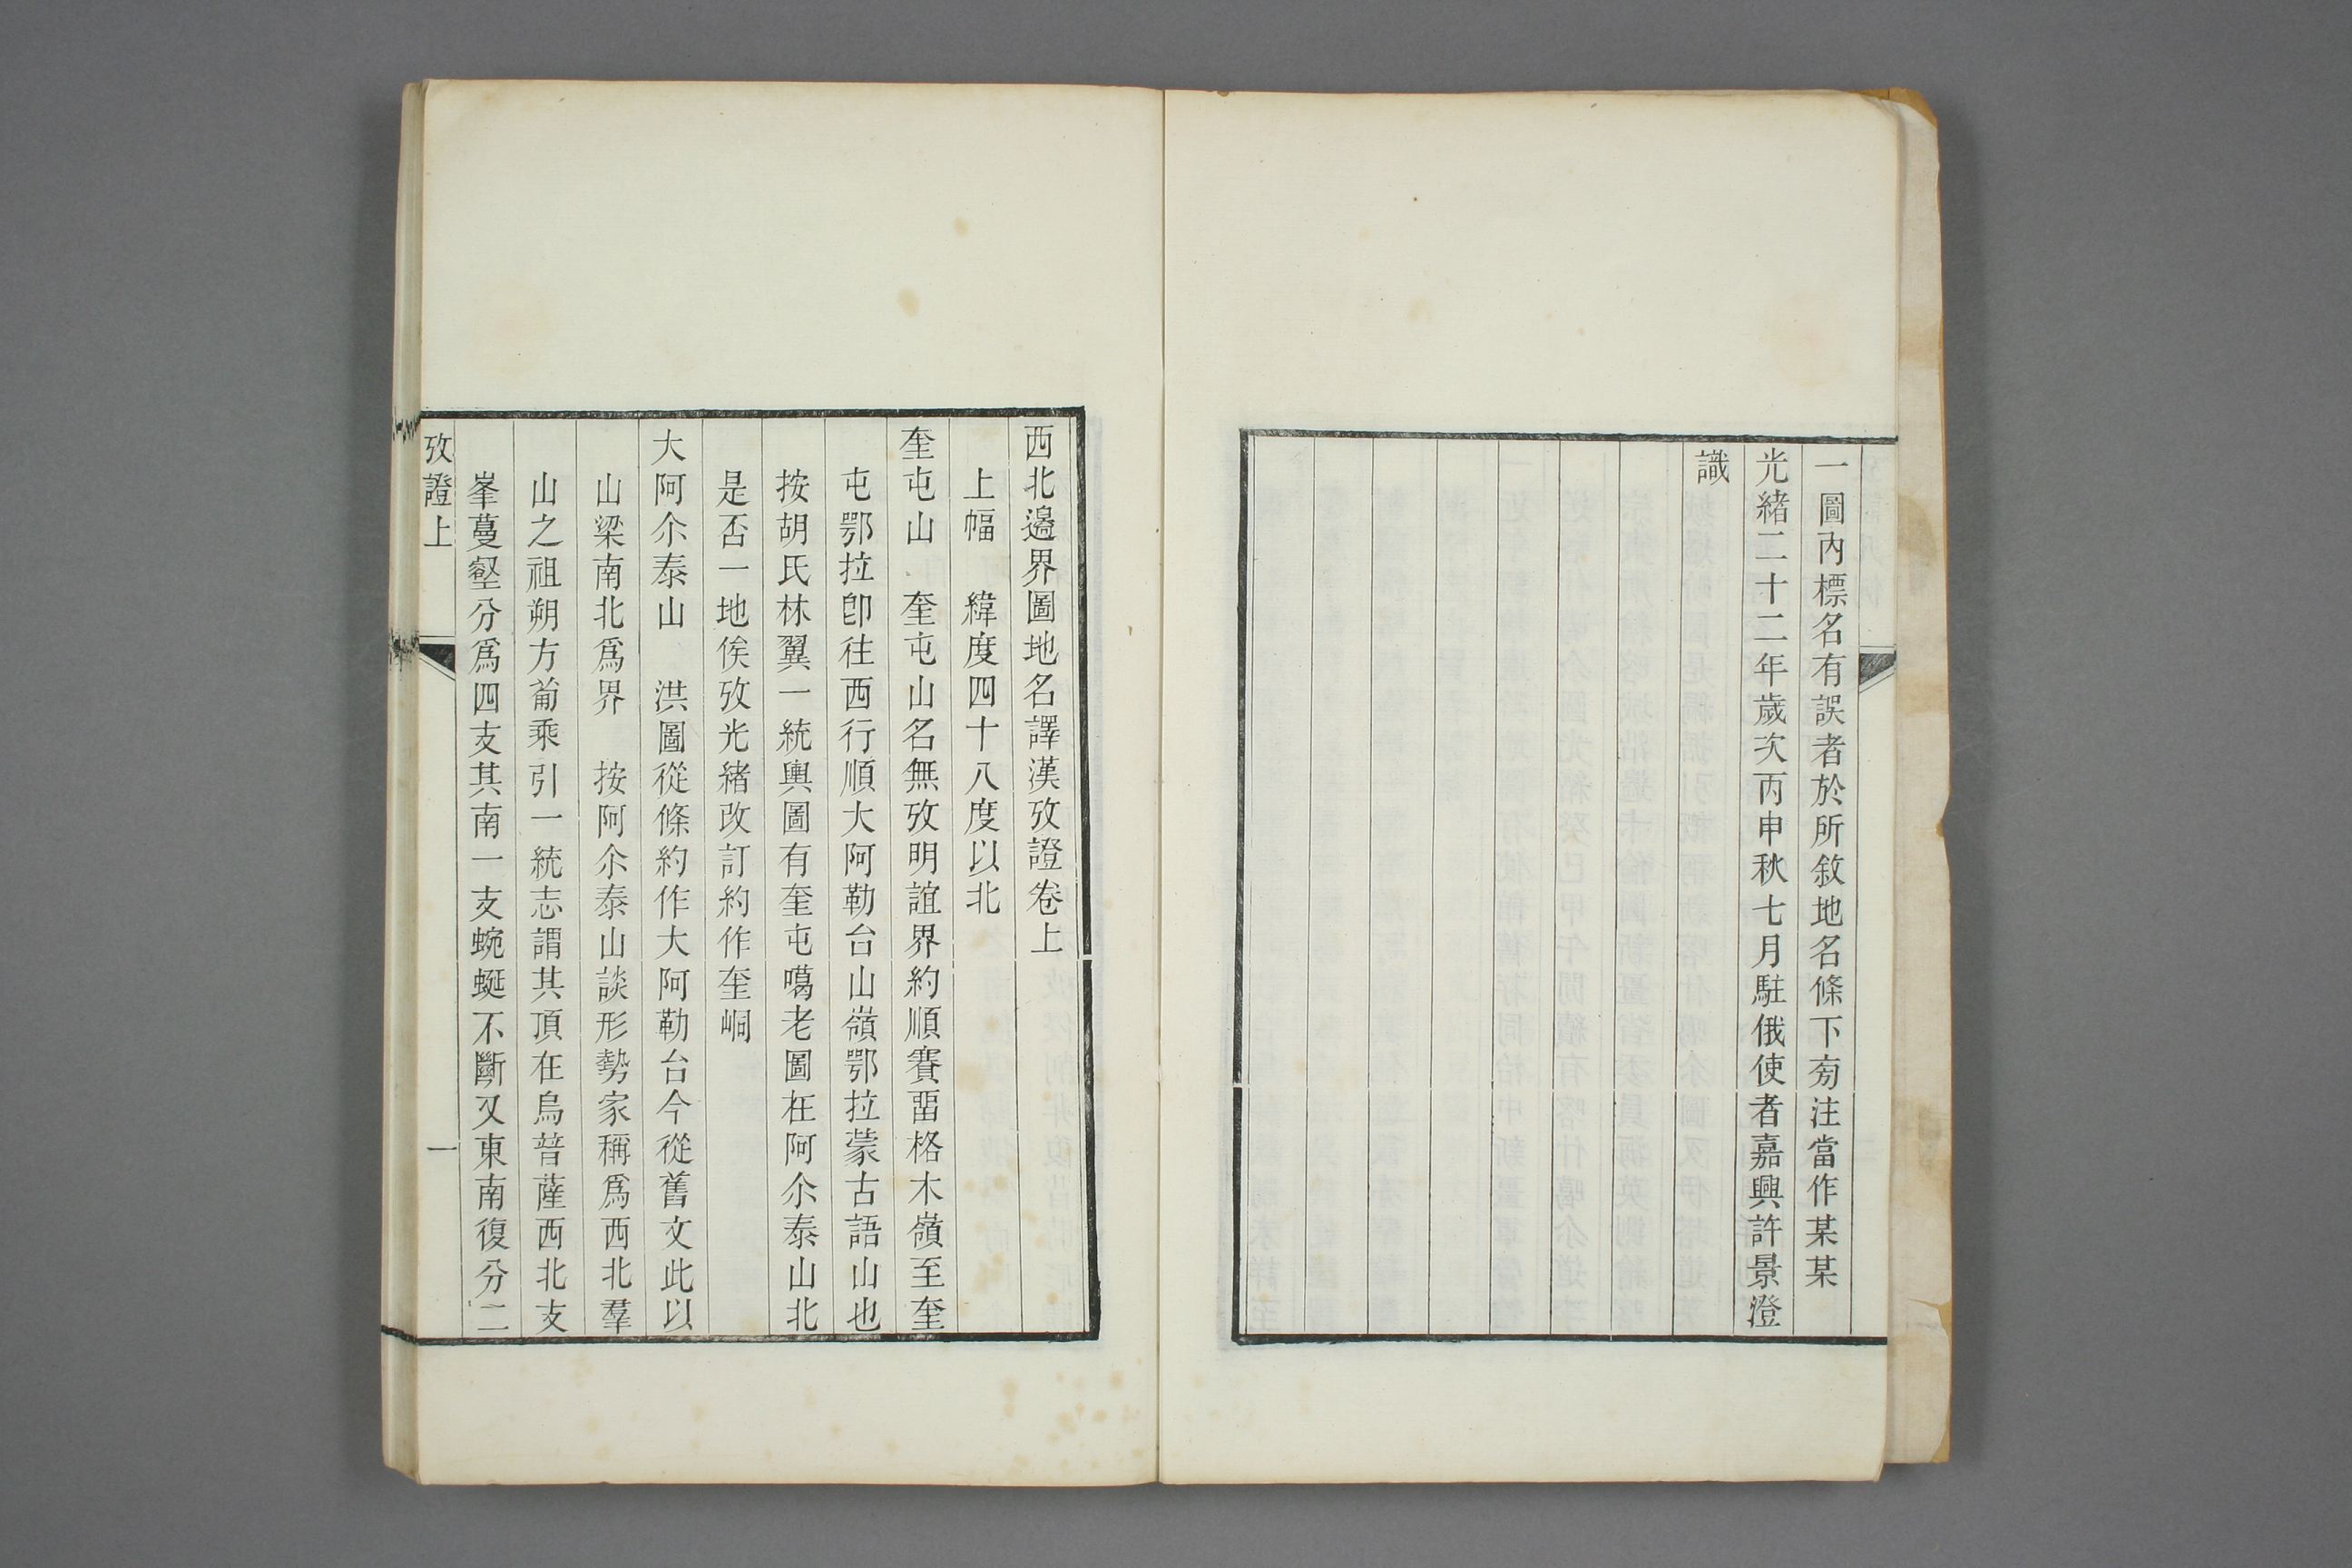 一圖內標名有誤者於所敘地名條下旁注當作某某
光緒二十二年歲次丙申秋七月駐俄使者嘉興許景澄
識
西北邊界圖地名譯漢攷證卷上
上幅　緯度四十八度以北
奎屯山　奎屯山名無攷明誼界約順賽畱格木嶺至奎
屯鄂拉卽往西行順大阿勒台山嶺鄂拉蒙古語山也
按胡氏林翼一統輿圖有奎屯噶老圖在阿尒泰山北
是否一地俟攷光緒改訂約作奎峒
大阿尒泰山　洪圖從條約作大阿勒台今從舊文此以
山梁南北爲界　按阿尒泰山談形勢家稱爲西北羣
山之祖朔方葡乘引一統志謂其頂在烏普薩西北支
峯蔓壑分爲四支其南一支蜿蜒不斷又東南復分二
攷證上
一